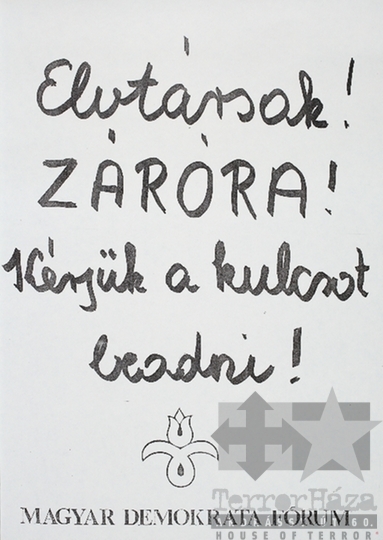 Elvtársak!
ZÁRÓRA!
Kérjük a kulcsot
leadni!
MAGYAR DEMOKRATA FÓRUM
TerrorHáza
ANDRÁSSY ÚT 60.
HOUSE OF TERROR